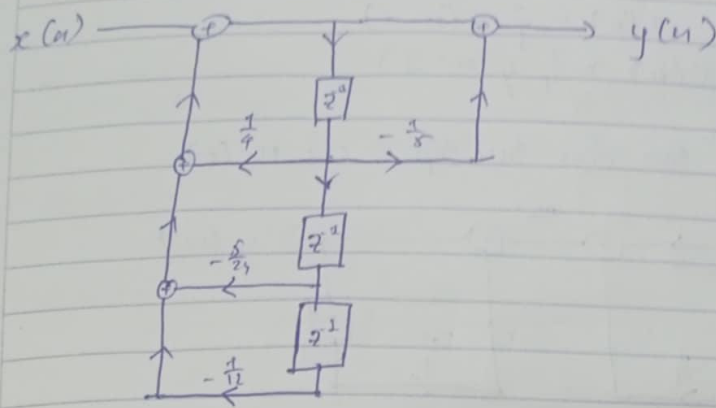 x(n) + + y(n)
z⁻¹
1/4 - 1/8
+
z⁻¹
- 5/24
+
z⁻¹
- 1/12